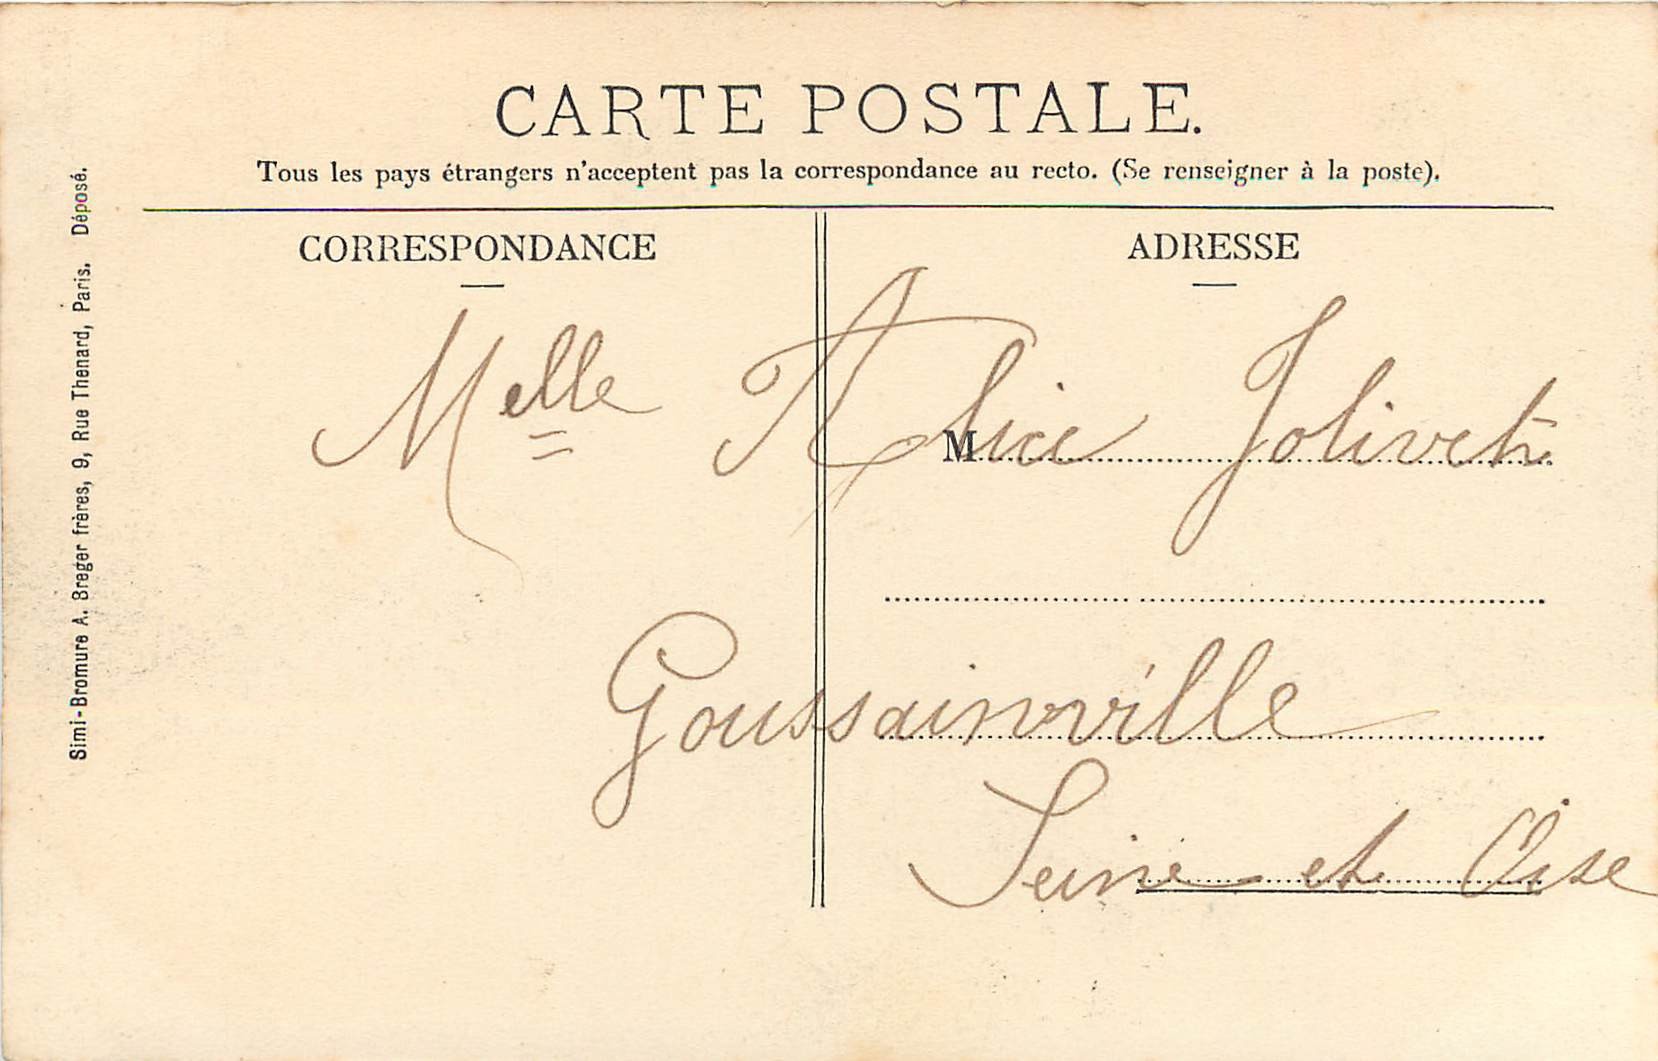 CARTE POSTALE.
Tous les pays étrangers n'acceptent pas la correspondance au recto. (Se renseigner à la poste).
CORRESPONDANCE
ADRESSE
Melle Alice Jolivet
M
Goussainville
Seine et Oise
Simi-Bromure A. Breger frères, 9, Rue Thenard, Paris. Déposé.